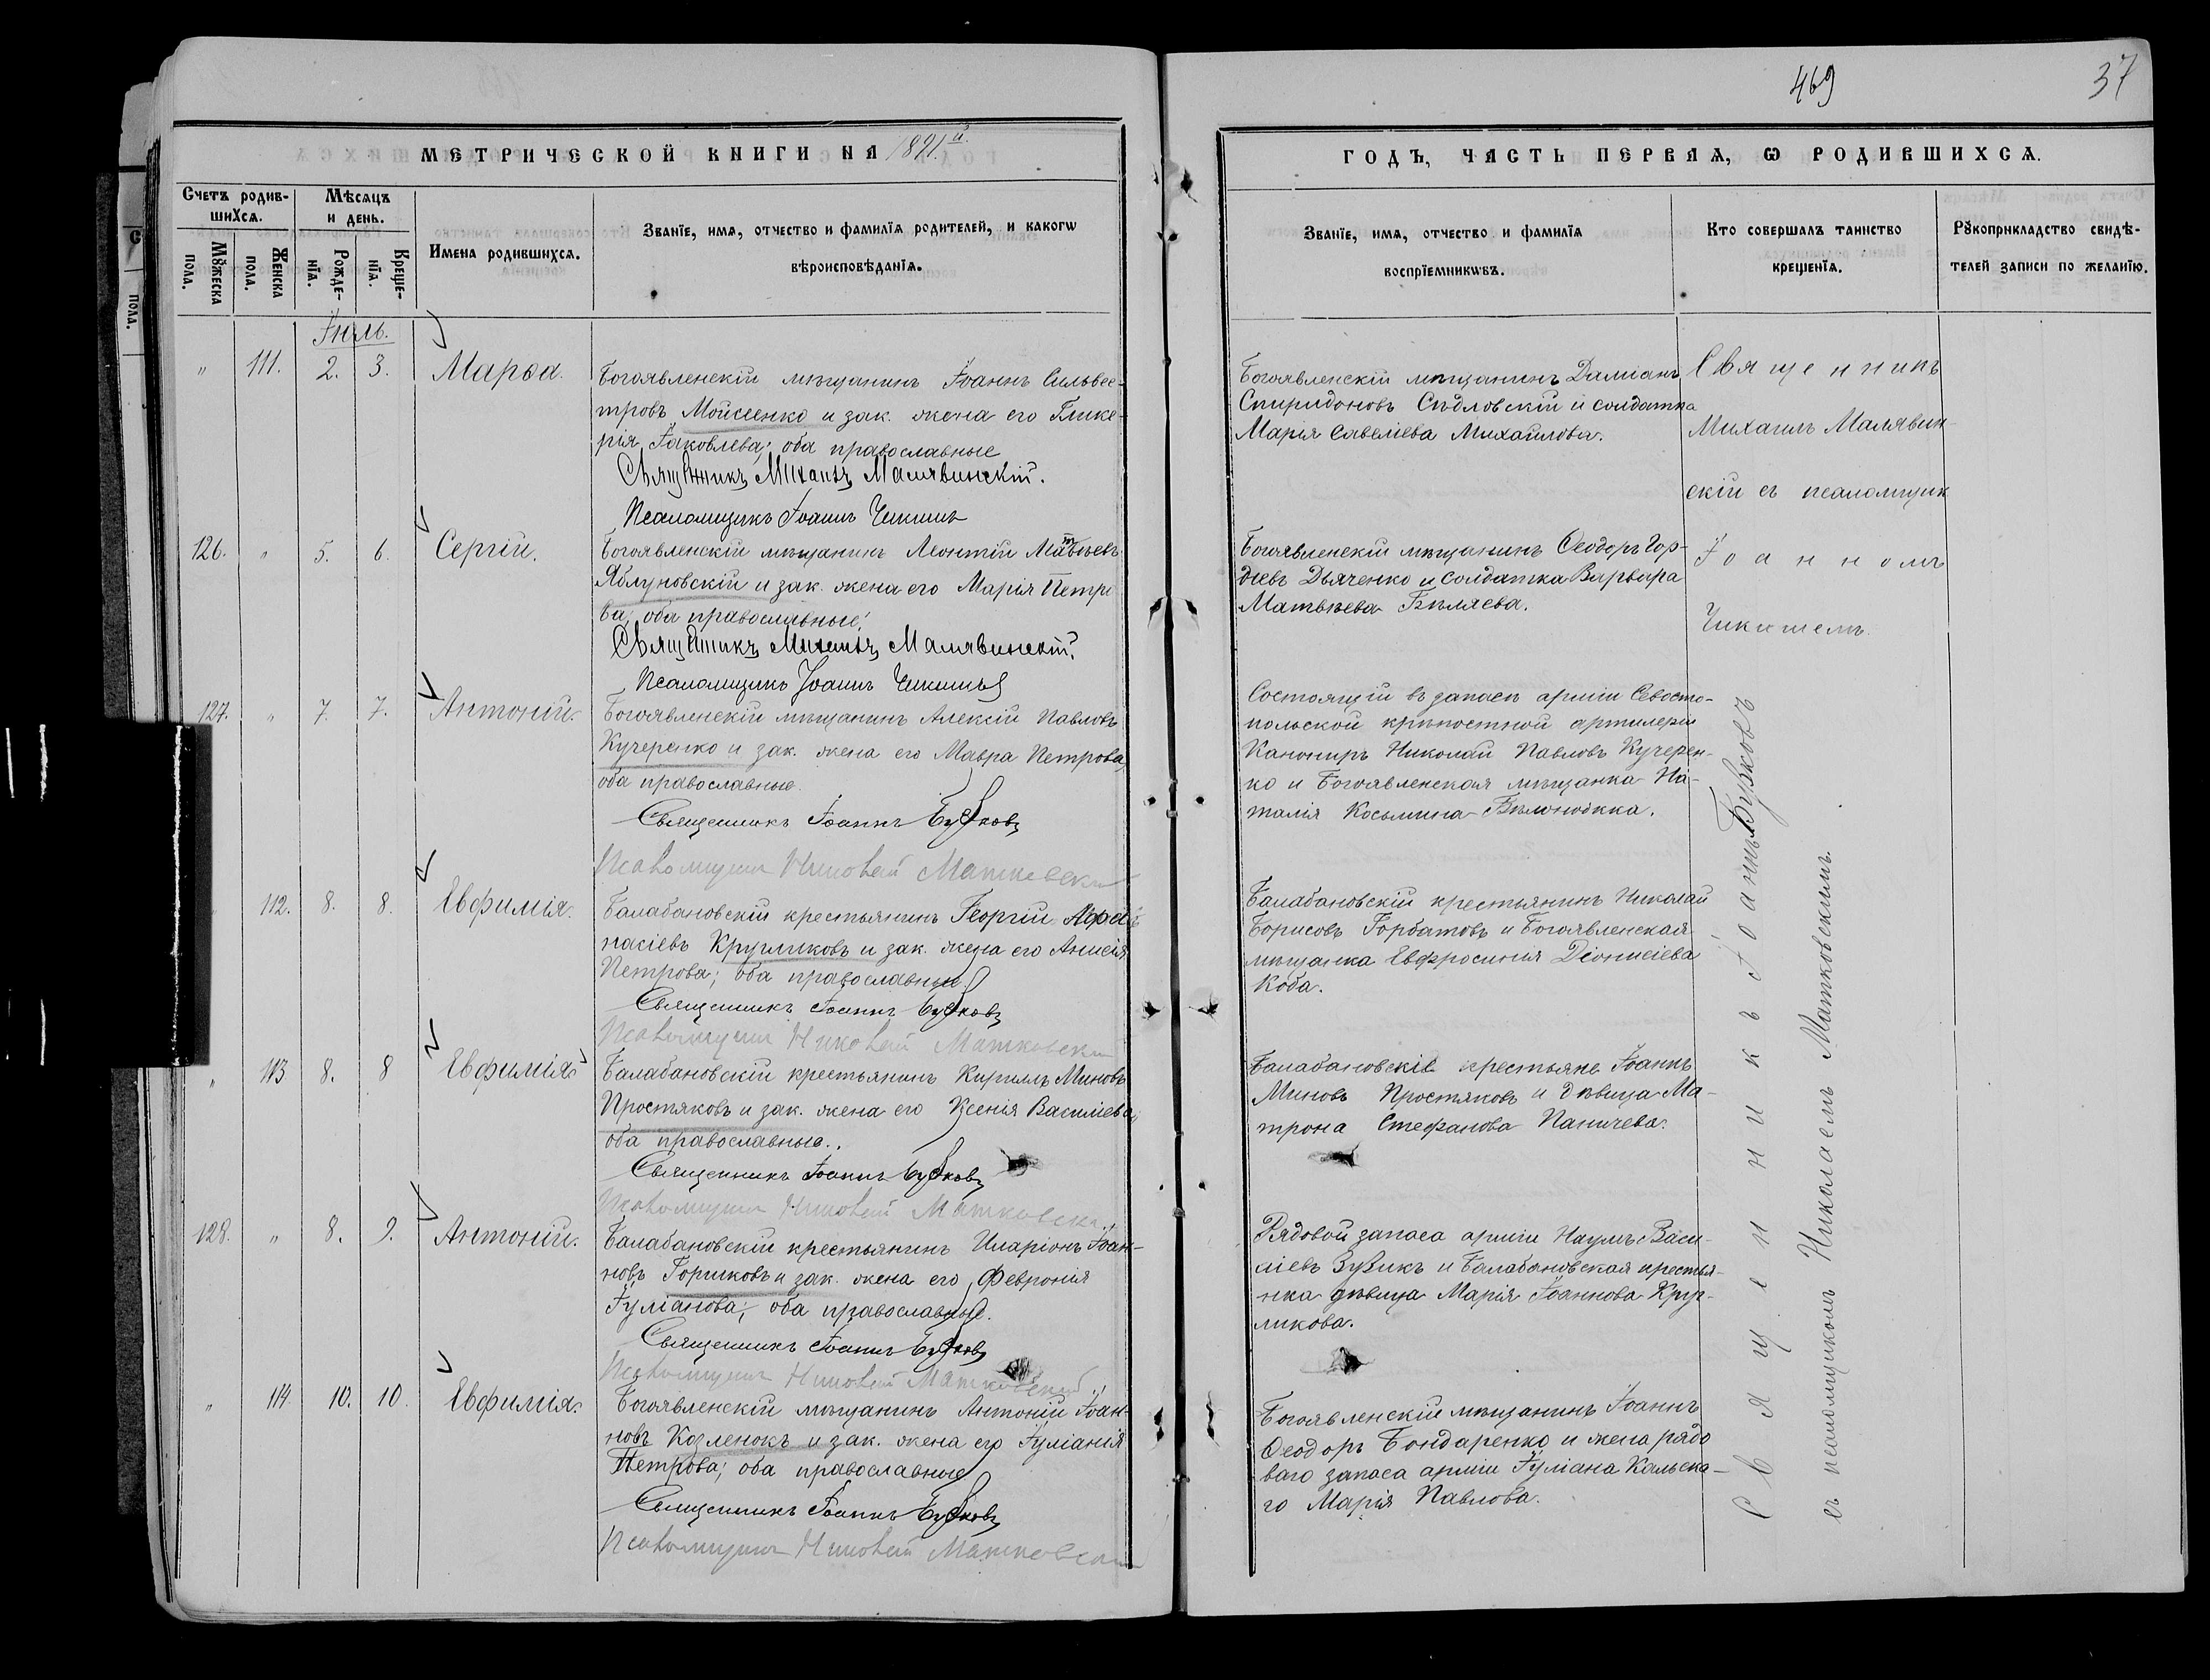 469
37
МЕТРИЧЕСКОЙ КНИГИ НА 1891й
ГОДЪ, ЧАСТЬ ПЕРВАѦ, Ѡ РОДИВШИХСѦ.
Счетъ родив-
шихсѧ.
Мꙋжеска
пола.
Женска
пола.
Мѣсѧцъ
и день.
Рожде-
нїѧ.
Креще-
нїѧ.
Имена родившихсѧ.
Званїе, имѧ, отчество и фамилїѧ родителей, и какогѡ
вѣроисповѣданїѧ.
Званїе, имѧ, отчество и фамилїѧ
воспрїемникѡвъ.
Кто совершалъ таинство
крещенїѧ.
Рꙋкоприкладство свидѣ-
телей записи по желанїю.
Іюль.
" 111. 2. 3. Марѳа.
Богоявленскій мѣщанинъ Іоаннъ Сильвес-
тровъ Мойсеенко и зак. жена его Глике-
рія Іаковлева; оба православные
Священникъ Михаилъ Малявинскій.
Псаломщикъ Іоаннъ Чикишъ
Богоявленскій мѣщанинъ Даміанъ
Спиридоновъ Сѣдловскій и солдатка
Марія Савеліева Михайлова.
Священникъ
Михаилъ Малявин-
скій съ псаломщик
Іоанномъ
Чикишемъ.
126. " 5. 6. Сергій.
Богоявленскій мѣщанинъ Леонтій Матвѣевъ
Яблуновскій и зак. жена его Марія Петро
ва; оба православные;
Священникъ Михаилъ Малявинскій.
Псаломщикъ Іоаннъ Чикишъ
Богоявленскій мѣщанинъ Ѳеодоръ Гор-
діевъ Дьяченко и солдатка Варвара
Матвѣева Бѣляева.
127. " 7. 7. Антоній.
Богоявленскій мѣщанинъ Алексій Павловъ
Кучеренко и зак. жена его Мавра Петрова,
оба православные.
Священникъ Іоаннъ Бузковъ
Псаломщикъ Николай Матковскій
Состоящій въ запасѣ арміи Севасто-
польской крѣпостной артилеріи
Канониръ Николай Павловъ Кучерен-
ко и Богоявленская мѣщанка На-
талія Косьмина Бѣлоножка.
112. 8. 8. Евфимія.
Балабановскій крестьянинъ Георгій Афа
насіевъ Кругликовъ и зак. жена его Анисія
Петрова; оба православные.
Священникъ Іоаннъ Бузковъ
Псаломщикъ Николай Матковскій
Балабановскій крестьянинъ Николай
Борисовъ Горбатовъ и Богоявленская
мѣщанка Евфросинія Діонисіева
Коба.
" 113 8. 8 Евфимія
Балабановскій крестьянинъ Кириллъ Миновъ
Простяковъ и зак. жена его Ксенія Василіева;
оба православные.
Священникъ Іоаннъ Бузковъ
Псаломщикъ Николай Матковскі
Балабановскіе крестьяне Іоаннъ
Миновъ Простяковъ и дѣвица Ма-
трона Стефанова Паничева.
128. " 8. 9. Антоній.
Балабановскій крестьянинъ Иларіонъ Іоан-
новъ Горшковъ и зак. жена его Февронія
Іуліанова; оба православные.
Священникъ Іоаннъ Бузковъ
Псаломщикъ Николай Матковскій
Рядовой запаса арміи Наумъ Васи-
ліевъ Зузикъ и Балабановская крестья-
нка дѣвица Марія Іоаннова Круг-
ликова.
" 114 10. 10. Евфимія.
Богоявленскій мѣщанинъ Антоній Іоан-
новъ Козленокъ и зак. жена его Іуліанія
Петрова; оба православные
Священникъ Іоаннъ Бузковъ
Псаломщикъ Николай Матковскі
Богоявленскій мѣщанинъ Іоаннъ
Ѳеодоръ Бондаренко и жена рядо
ваго запаса арміи Іуліана Кальска-
го Марія Павлова.
Священникъ Іоаннъ Бузковъ
съ псаломщикомъ Николаемъ Матковскимъ.